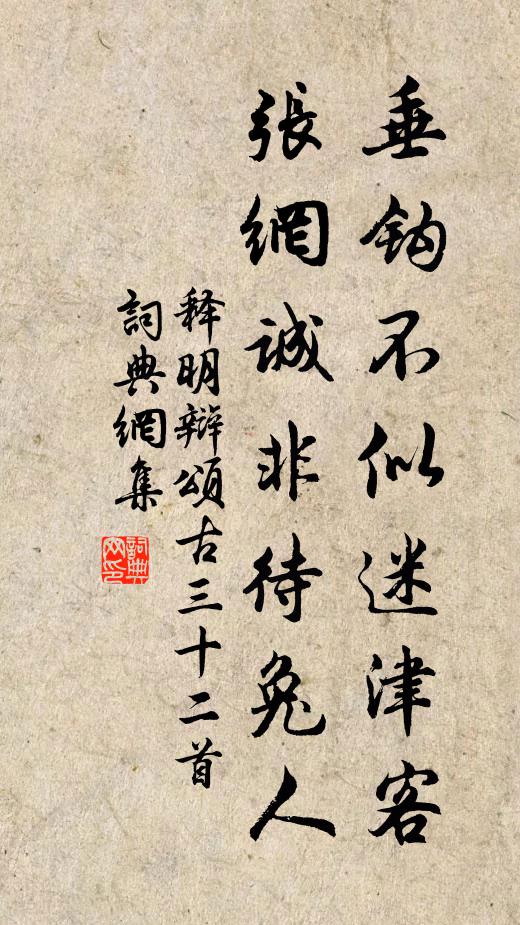 垂鈎不似迷津客
張網誠非待兔人
释明辯頌古三十二首
詞典網集
詞典網印